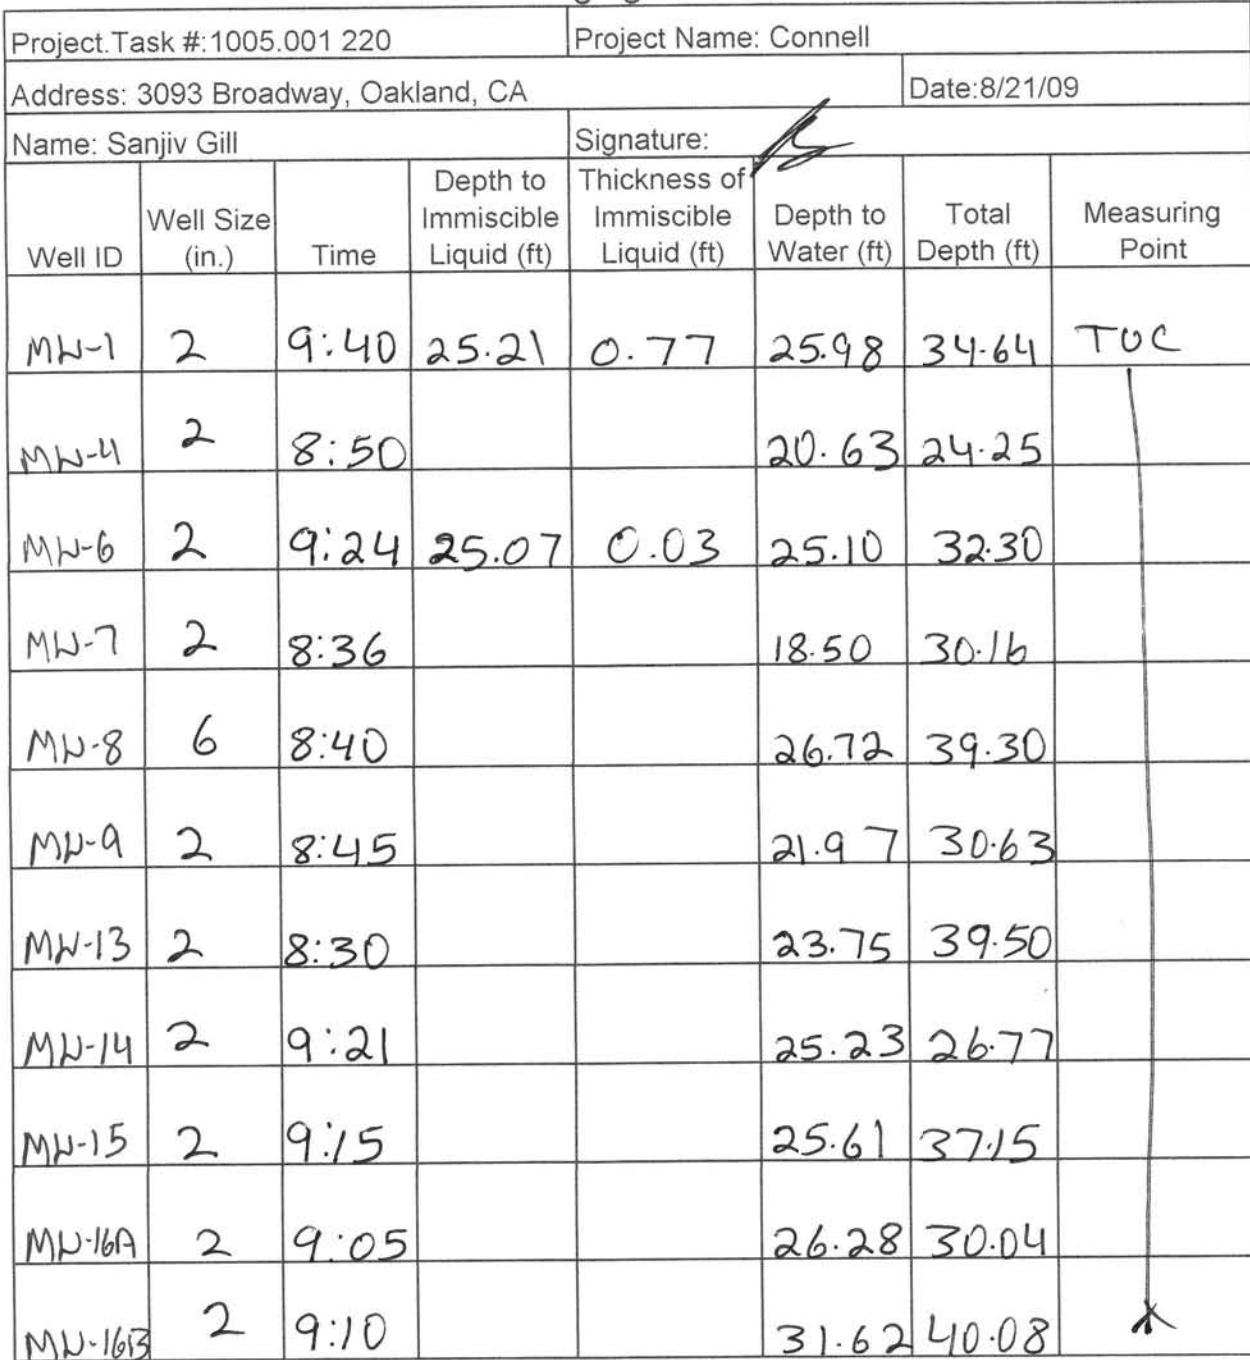 Project.Task #:1005.001 220 Project Name: Connell
Address: 3093 Broadway, Oakland, CA Date:8/21/09
Name: Sanjiv Gill Signature:
Well ID Well Size (in.) Time Depth to Immiscible Liquid (ft) Thickness of Immiscible Liquid (ft) Depth to Water (ft) Total Depth (ft) Measuring Point
MW-1 2 9:40 25.21 0.77 25.98 34.64 TOC
MW-4 2 8:50 20.63 24.25
MW-6 2 9:24 25.07 0.03 25.10 32.30
MW-7 2 8:36 18.50 30.16
MW-8 6 8:40 26.72 39.30
MW-9 2 8:45 21.97 30.63
MW-13 2 8:30 23.75 39.50
MW-14 2 9:21 25.23 26.77
MW-15 2 9:15 25.61 37.15
MW-16A 2 9:05 26.28 30.04
MW-16B 2 9:10 31.62 40.08